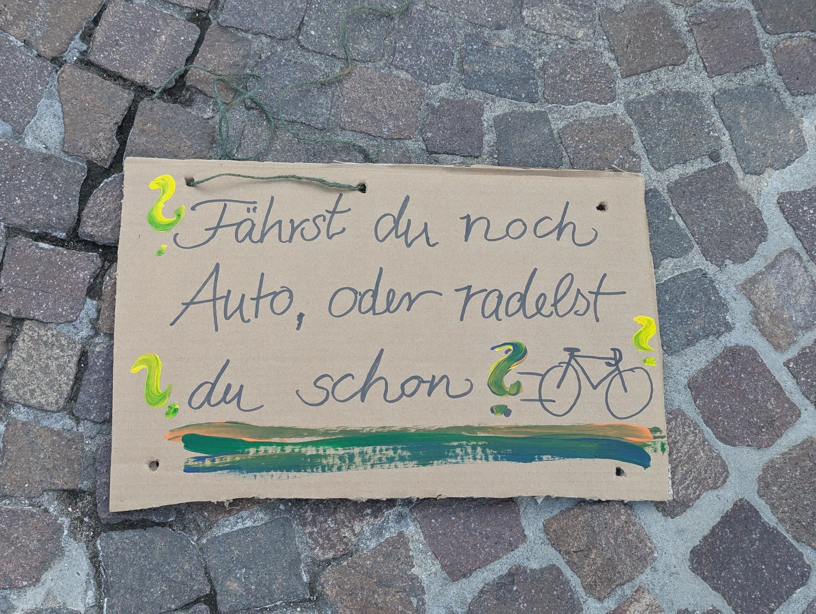 ? Fährst du noch
Auto, oder radelst
? du schon ? ?